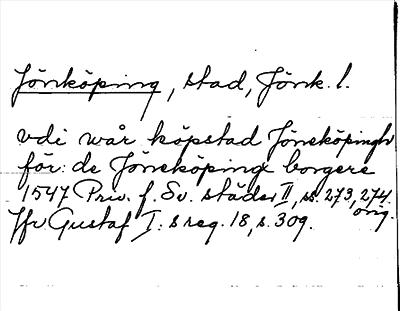 Jönköping, stad, Jönk. l.
vdi wår köpstad Jöneköpingh
för: de Jöneköping borgere
1547 Priv. f. Sv. städer II, ss. 273, 274.
orig.
Jfr Gustaf I:s reg. 18, s. 309.